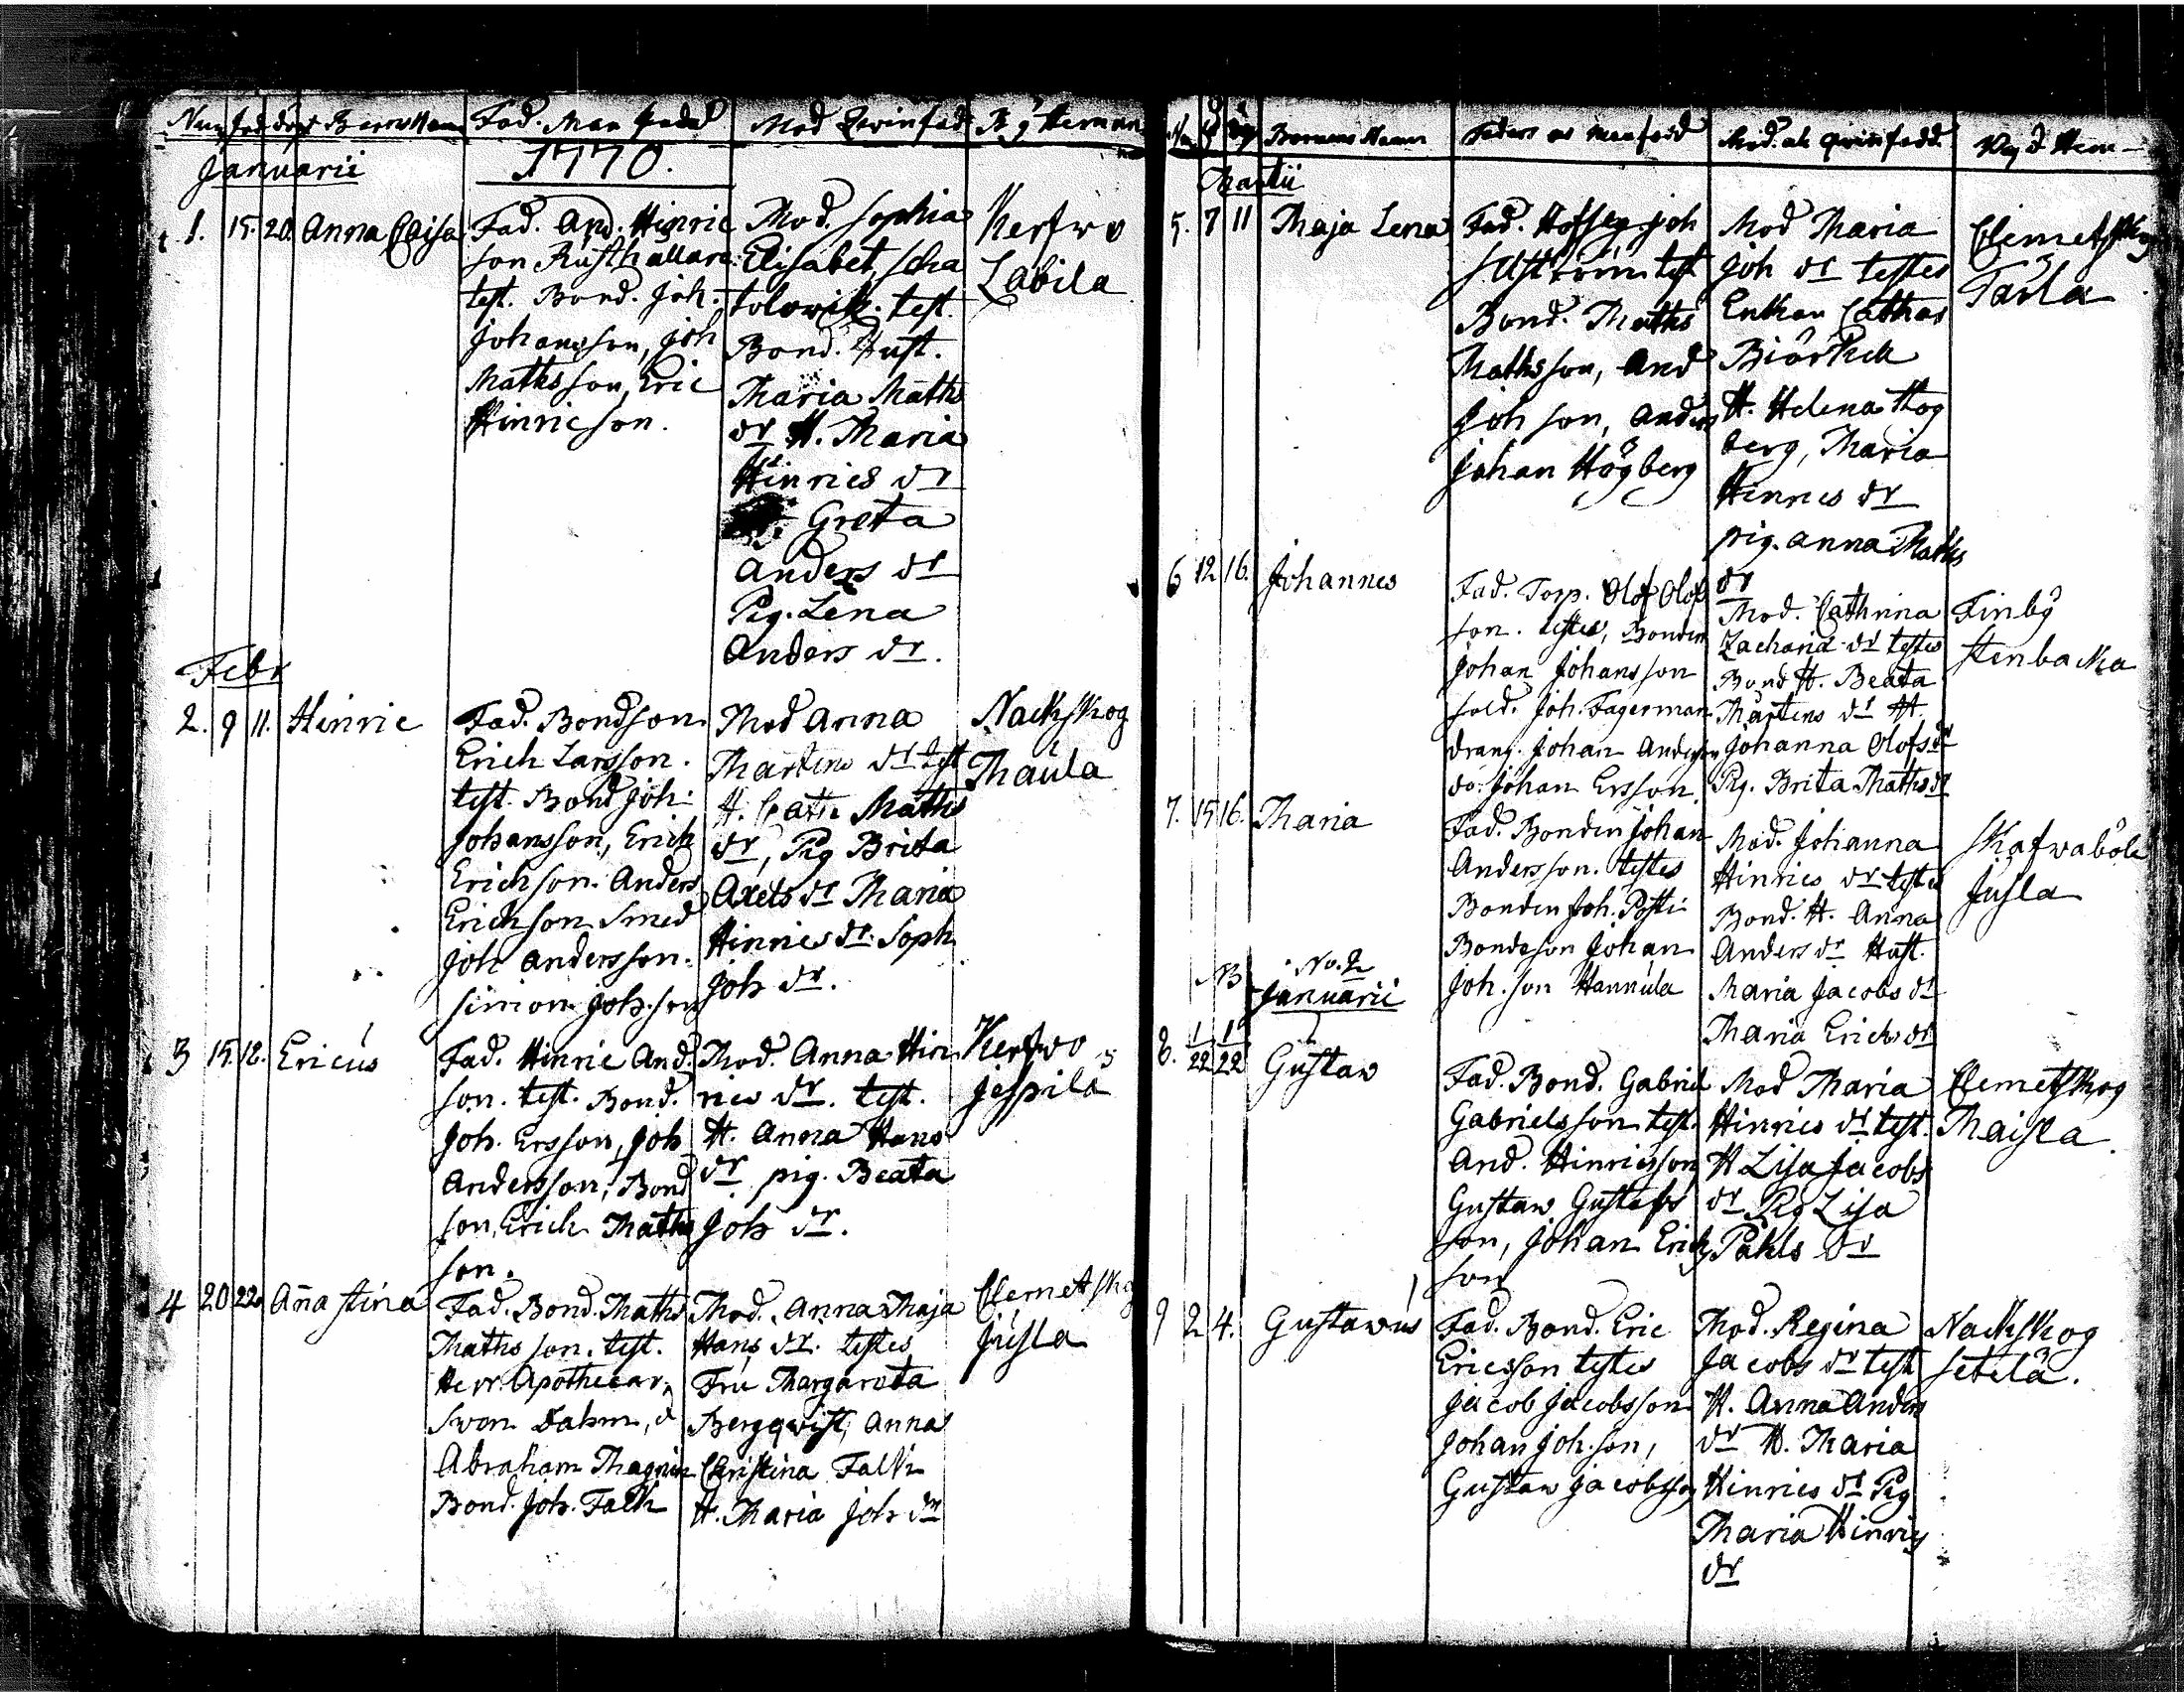 Num föd döpt Barns Namn Fad. Man fadd Mod Qvin fad By Heman
Januarii 1770.
1. 15. 20. Anna Caisa
Fad. And. Hinric
son Rusthållare
test. Bond. Joh.
Johansson, Joh
Mathsson, Eric
Hinricson.
Mod. Sophia
Elisabet, Scha
tolowitz. test.
Bond. Hust.
Maria Maths
dr H. Maria
Hinrics dr
Greta
Anders dr
Pig. Lena
Anders dr.
Kerfwo
Labila
Febr
2. 9 11. Hinric
Fad. Bondson
Erich Larsson.
test. Bond Joh.
Johansson, Erich
Erichson. Anders
Erichson Smed
Joh Andersson.
Simon Joh. son
Mod Anna
Martens dr. test
H. Cath. Maths
dr, Pig Brita
Axels dr Maria
Hinrics dr. Soph
Joh dr.
Nackskog
Maula
3 15. 18. Ericus
Fad. Hinric And.
son. test. Bond.
Joh. Ersson, Joh
Andersson, Bond
son, Erich Maths
son.
Mod. Anna Hin
rics dr. test.
H. Anna Hans
dr. pig. Beata
Joh dr.
Kerfvo
Jespila
4 20 22. Anna Stina
Fad. Bond. Maths
Maths son. test.
Herr. Apothecar.
Swen Dahm, d
Abraham Magnus
Bond. Joh. Falk
Mod. Anna Maja
Hans dr. testes
Fru Margareta
Bergqwist, Anna
Christina Falk
H. Maria Joh dr
Clemetskog
Jusla
Barnens Namn Faders oc Manfadd Mod. ok qwinfadd. By d Hem
Martii
5. 7 11 Maja Lena
Fad. Hofseg. Joh
test
Bond. Maths
Mathsson, And
Joh son, Anders
Johan Högberg
Mod Maria
Joh dr testes
Enkan Cathar
Biörkek
H. Helena Hog
berg, Maria
Hinrics dr
pig. Anna Maths
dr
Clemetskog
Tarla
6 12 16. Johannes
Fad. Torp. Olof Olof
son. testes, Bonden
Johan Johansson
Sold. Joh. Fagerman
dräng. Johan Anderson
do: Johan Ersson.
Mod. Cathrina
Zacharid. dr testes
Bond H. Beata
Martens dr H.
Johanna Olofs dr
Pig. Brita Maths dr
Finby
Stenbacka
7. 15 16. Maria
Fad. Bonden Johan
Andersson. testes
Bonden Joh. Posti
Bondeson Johan
Joh. son Hannula
Mod. Johanna
Hinrics dr testes
Bond. H. Anna
Anders dr Hust.
Maria Jacobs dr
Maria Erichs dr
Skafwaböle
Jusla
NB No. 2
Januarii
8. 1/22 1/22 Gustav
Fad. Bond. Gabriel
Gabrielsson test.
And. Hinricsson
Gustaw Gustafs
son, Johan Erich
son
Mod Maria
Hinrics dr test.
H Lisa Jacobs
dr Pig Lisa
Påhls dr
Clemetskog
Maisla
9 2 4. Gustavus
Fad. Bond. Eric
Ericsson testes
Jacob Jacobsson
Johan Joh. son,
Gustaw Jacobsson
Mod. Regina
Jacobs dr test
H. Anna Anders
dr H. Maria
Hinrics dr Pig
Maria Hinrics
dr
Nackskog
Setela.